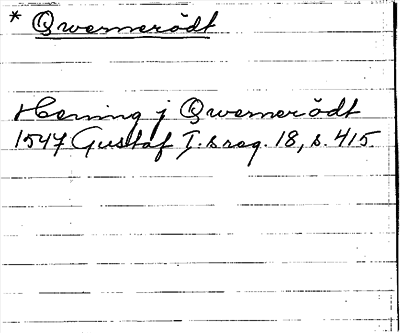 * Qwernerödt
Herning j Qwernerödt
1547 Gustaf I:s reg. 18, s. 415.